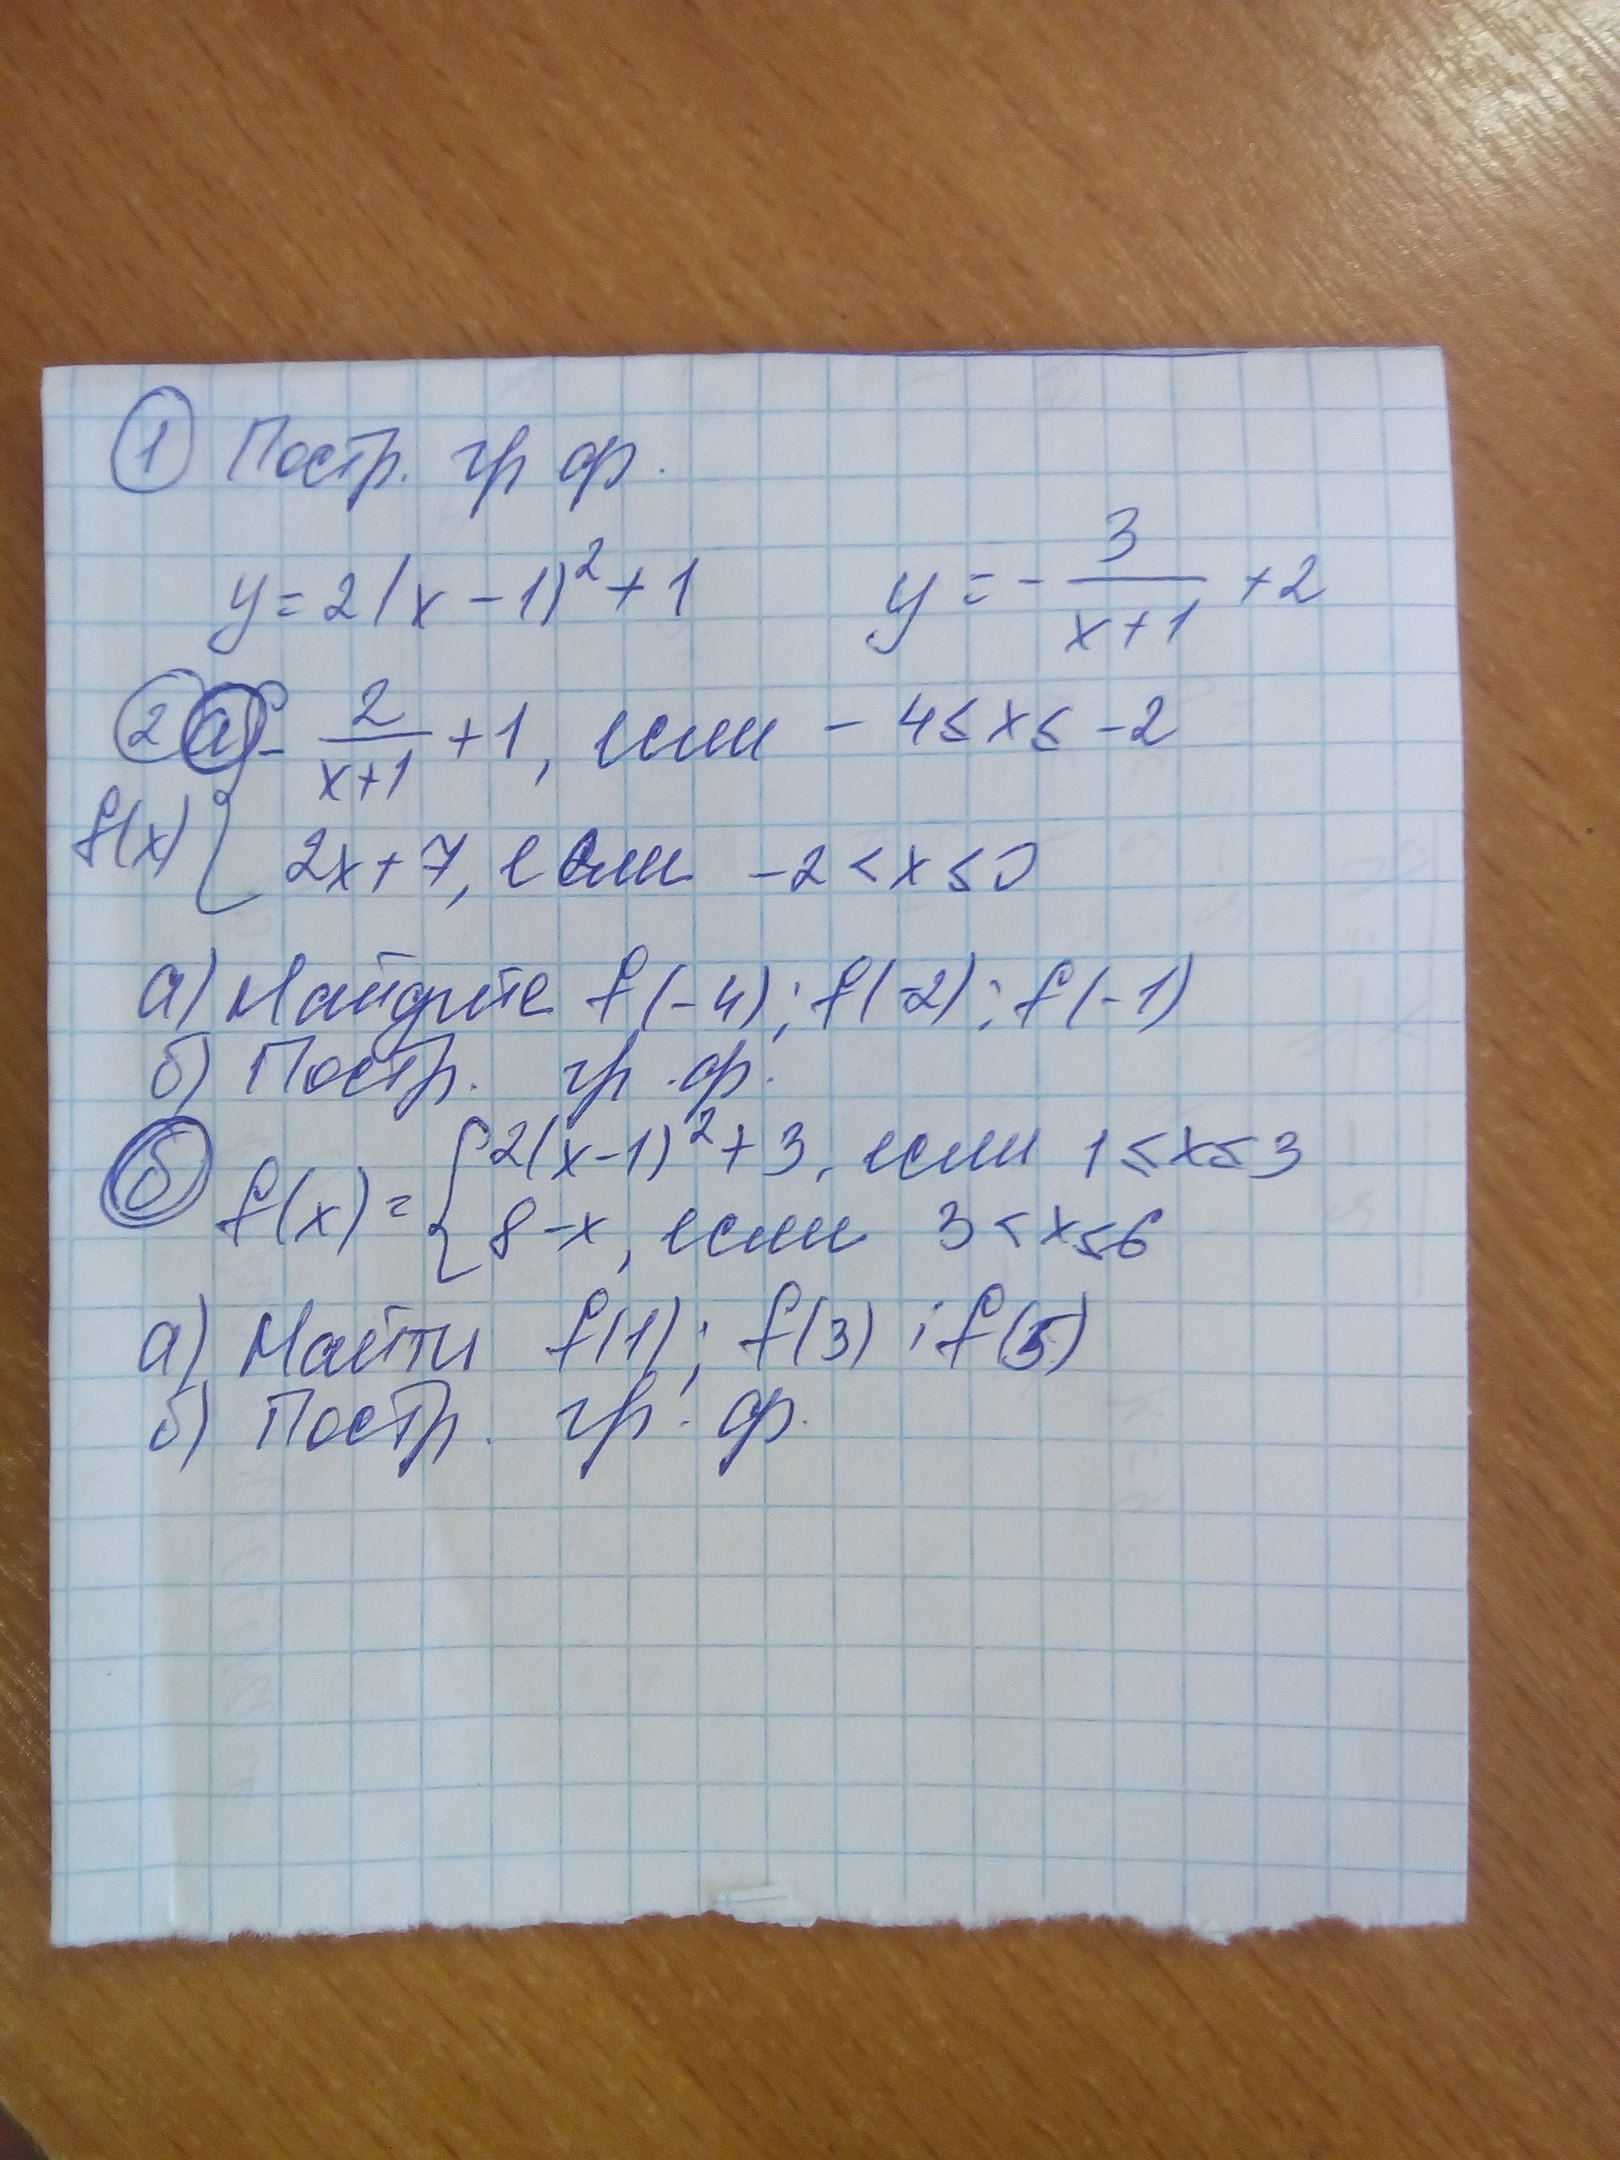 ① Постр. гр ф.
y = 2(x - 1)² + 1 y = - 3/(x+1) + 2
② а) { - 2/(x+1) + 1, если - 4 ≤ x ≤ - 2
f(x) { 2x + 7, если - 2 < x ≤ 0
а) Найдите f(-4); f(-2); f(-1)
б) Постр. гр. ф.
б) f(x) = { 2(x-1)² + 3, если 1 ≤ x ≤ 3
8 - x, если 3 < x ≤ 6
а) Найти f(1); f(3); f(5)
б) Постр. гр. ф.